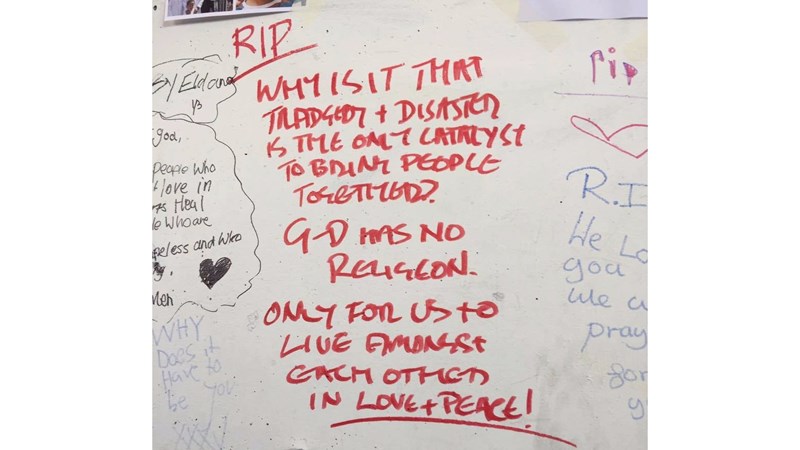 RIP
WHY IS IT THAT
TRADGEDY + DISASTER
IS THE ONLY CATALYST
TO BRING PEOPLE
TOGETHER?
G-D HAS NO
RELIGEON.
ONLY FOR US TO
LIVE AMONGST
EACH OTHER
IN LOVE + PEACE!
God,
people who
love in
Heal
who are
and who
WHY
Does it
Have to
be you
XXX
rip
R.I
We Lo
you
we
pray
for
y